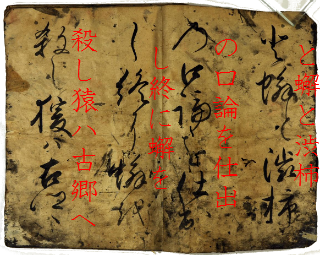 と蠏と渋柿
の口論を仕出
し終に蠏を
殺し猿ハ古郷へ